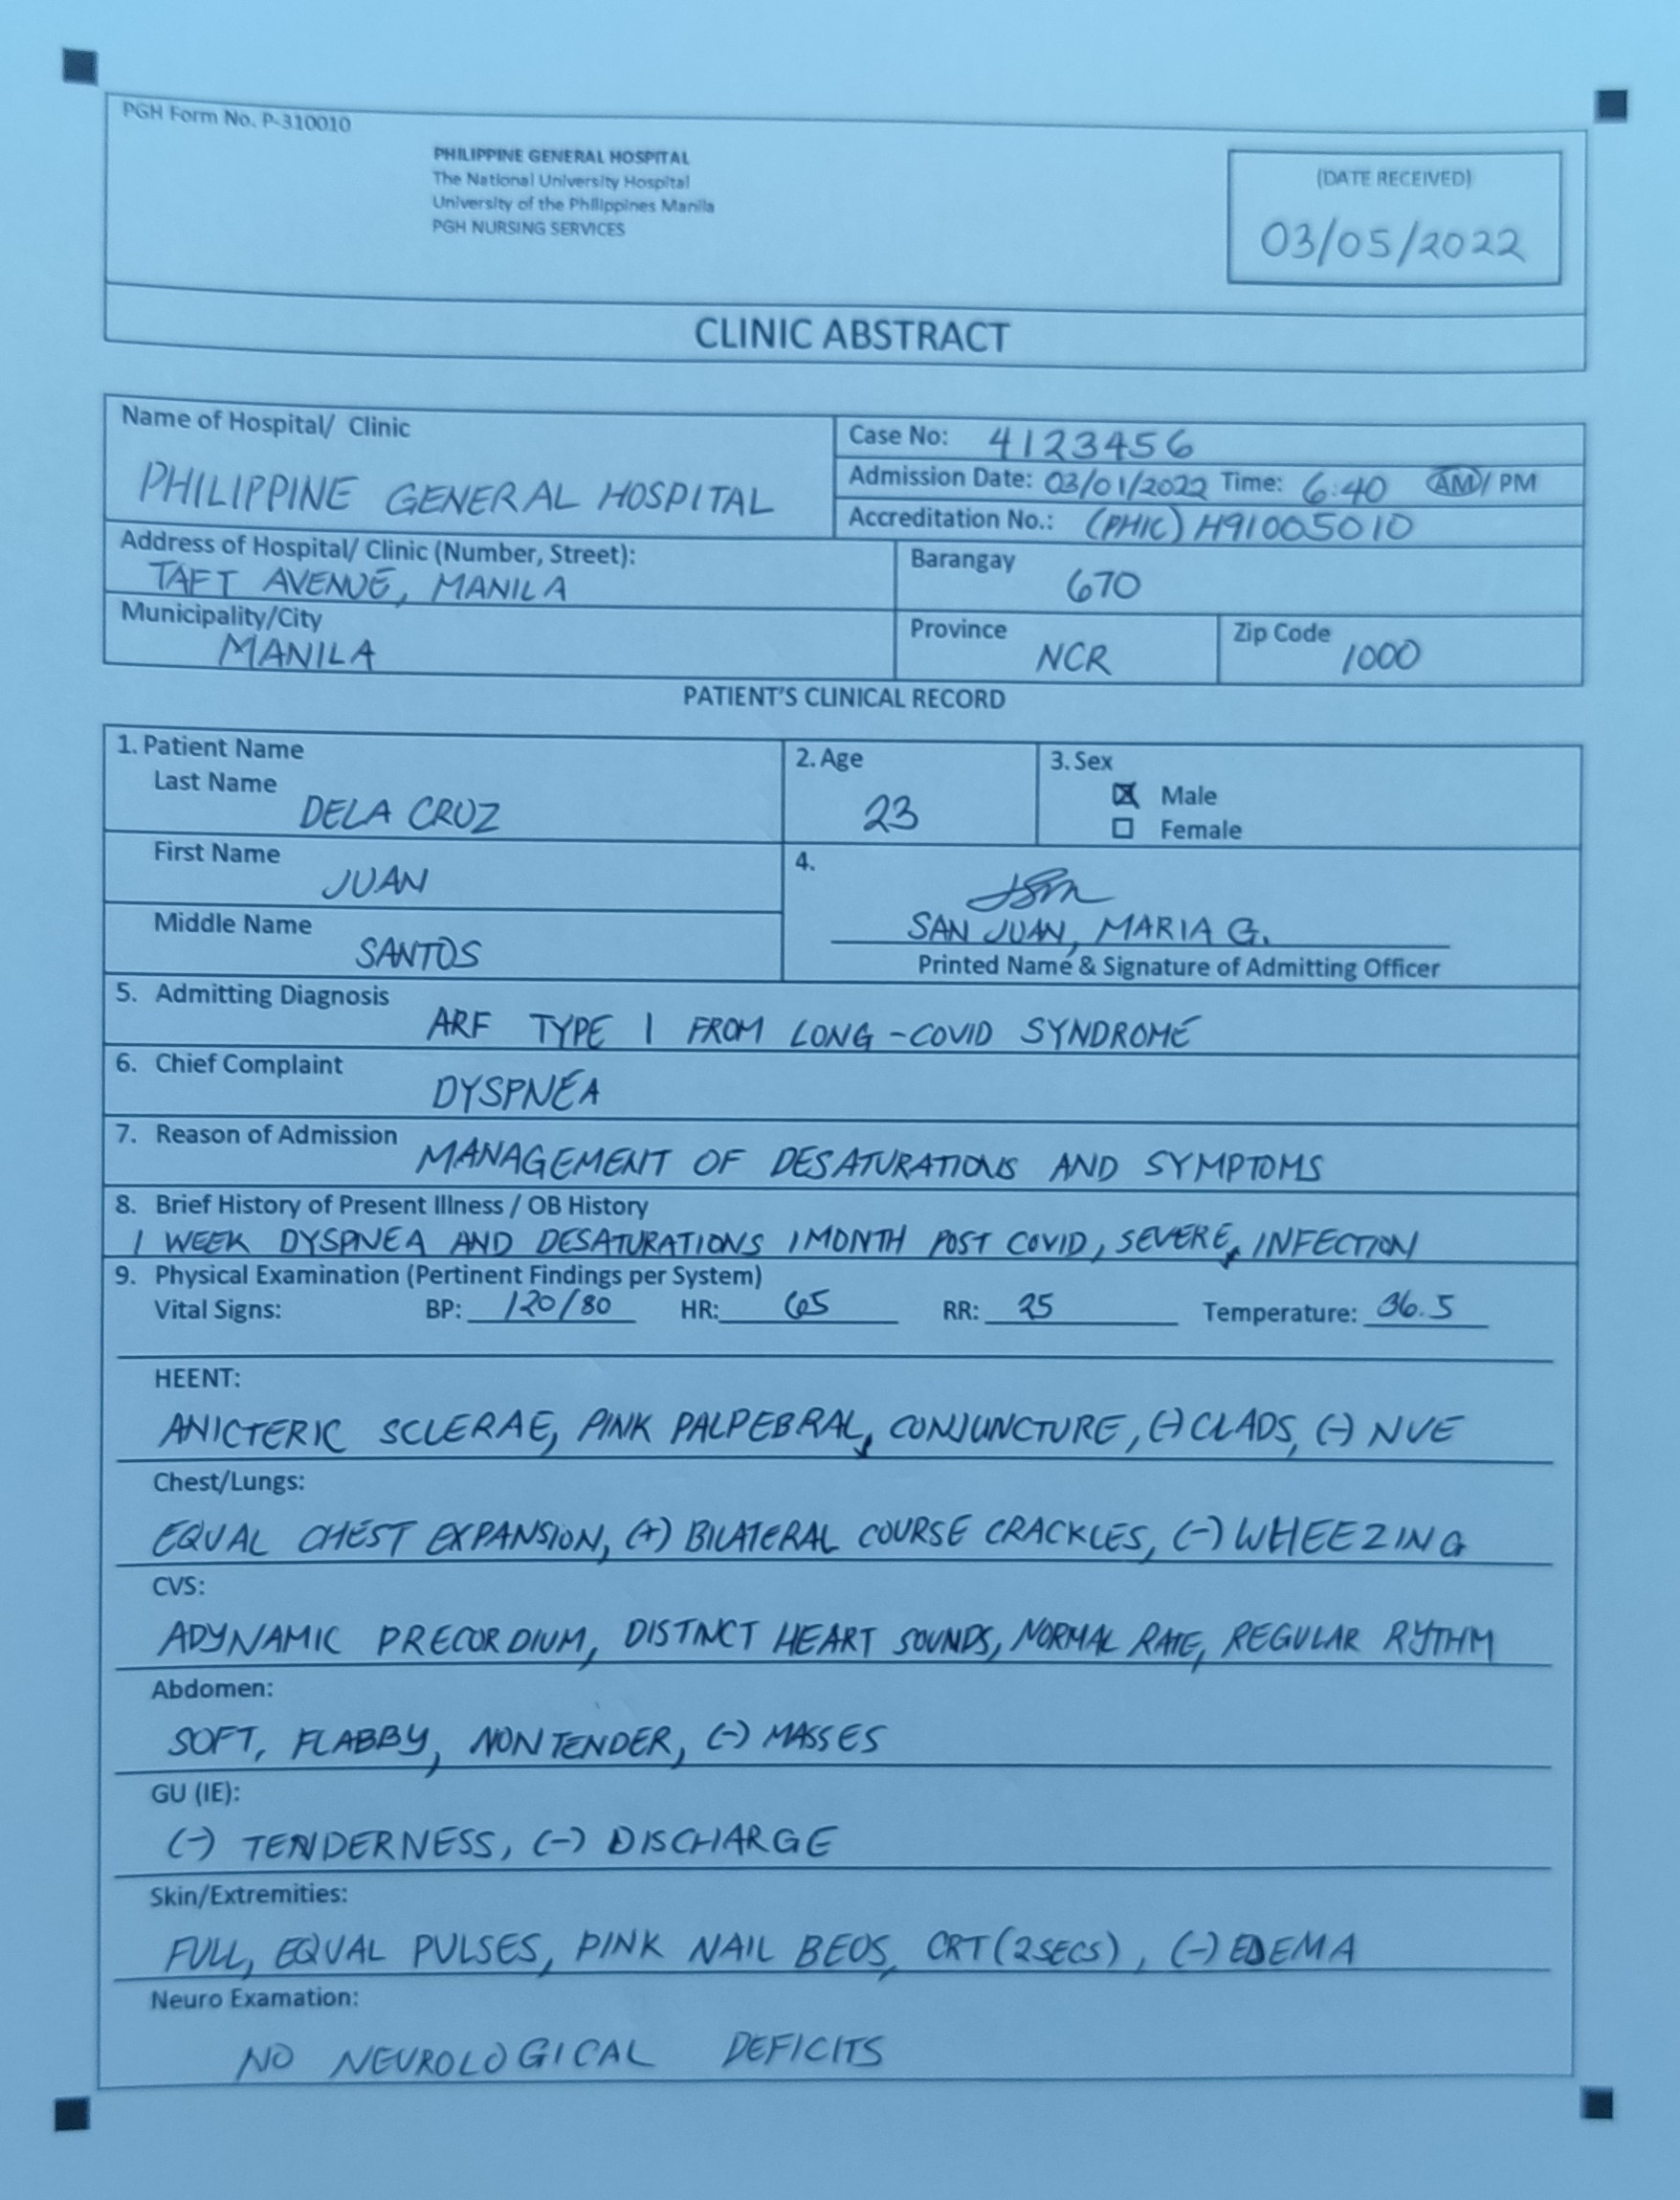 PGH Form No. P-310010
PHILIPPINE GENERAL HOSPITAL
The National University Hospital
University of the Philippines Manila
PGH NURSING SERVICES
(DATE RECEIVED)
03/05/2022
CLINIC ABSTRACT
Name of Hospital/ Clinic
PHILIPPINE GENERAL HOSPITAL
Case No: 4123456
Admission Date: 03/01/2022 Time: 6:40 AM/ PM
Accreditation No.: (PHIC) H91005010
Address of Hospital/ Clinic (Number, Street):
TAFT AVENUE, MANILA
Barangay
670
Municipality/City
MANILA
Province
NCR
Zip Code
1000
PATIENT'S CLINICAL RECORD
1. Patient Name
Last Name
DELA CRUZ
2. Age
23
3. Sex
Male
Female
First Name
JUAN
Middle Name
SANTOS
4.
SAN JUAN, MARIA G.
Printed Name & Signature of Admitting Officer
5. Admitting Diagnosis
ARF TYPE 1 FROM LONG-COVID SYNDROME
6. Chief Complaint
DYSPNEA
7. Reason of Admission
MANAGEMENT OF DESATURATIONS AND SYMPTOMS
8. Brief History of Present Illness / OB History
1 WEEK DYSPNEA AND DESATURATIONS 1 MONTH POST COVID, SEVERE, INFECTION
9. Physical Examination (Pertinent Findings per System)
Vital Signs: BP: 120/80 HR: 65 RR: 25 Temperature: 36.5
HEENT:
ANICTERIC SCLERAE, PINK PALPEBRAL, CONJUNCTURE, (-) CLADS, (-) NVE
Chest/Lungs:
EQUAL CHEST EXPANSION, (+) BILATERAL COURSE CRACKLES, (-) WHEEZING
CVS:
ADYNAMIC PRECORDIUM, DISTINCT HEART SOUNDS, NORMAL RATE, REGULAR RYTHM
Abdomen:
SOFT, FLABBY, NONTENDER, (-) MASSES
GU (IE):
(-) TENDERNESS, (-) DISCHARGE
Skin/Extremities:
FULL, EQUAL PULSES, PINK NAIL BEDS, CRT (2SECS), (-) EDEMA
Neuro Examation:
NO NEUROLOGICAL DEFICITS